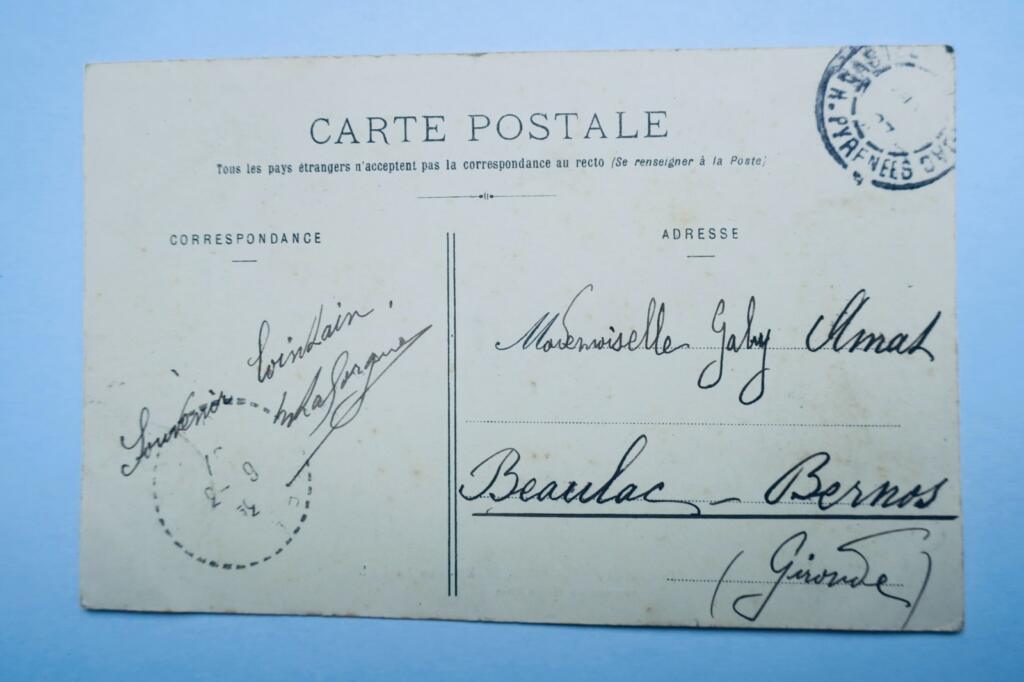 CARTE POSTALE
Tous les pays étrangers n'acceptent pas la correspondance au recto (Se renseigner à la Poste)
CORRESPONDANCE
Souvenir lointain.
ADRESSE
Mademoiselle Gaby Amat
Beaulac - Bernos
(Gironde)
PYRENEES